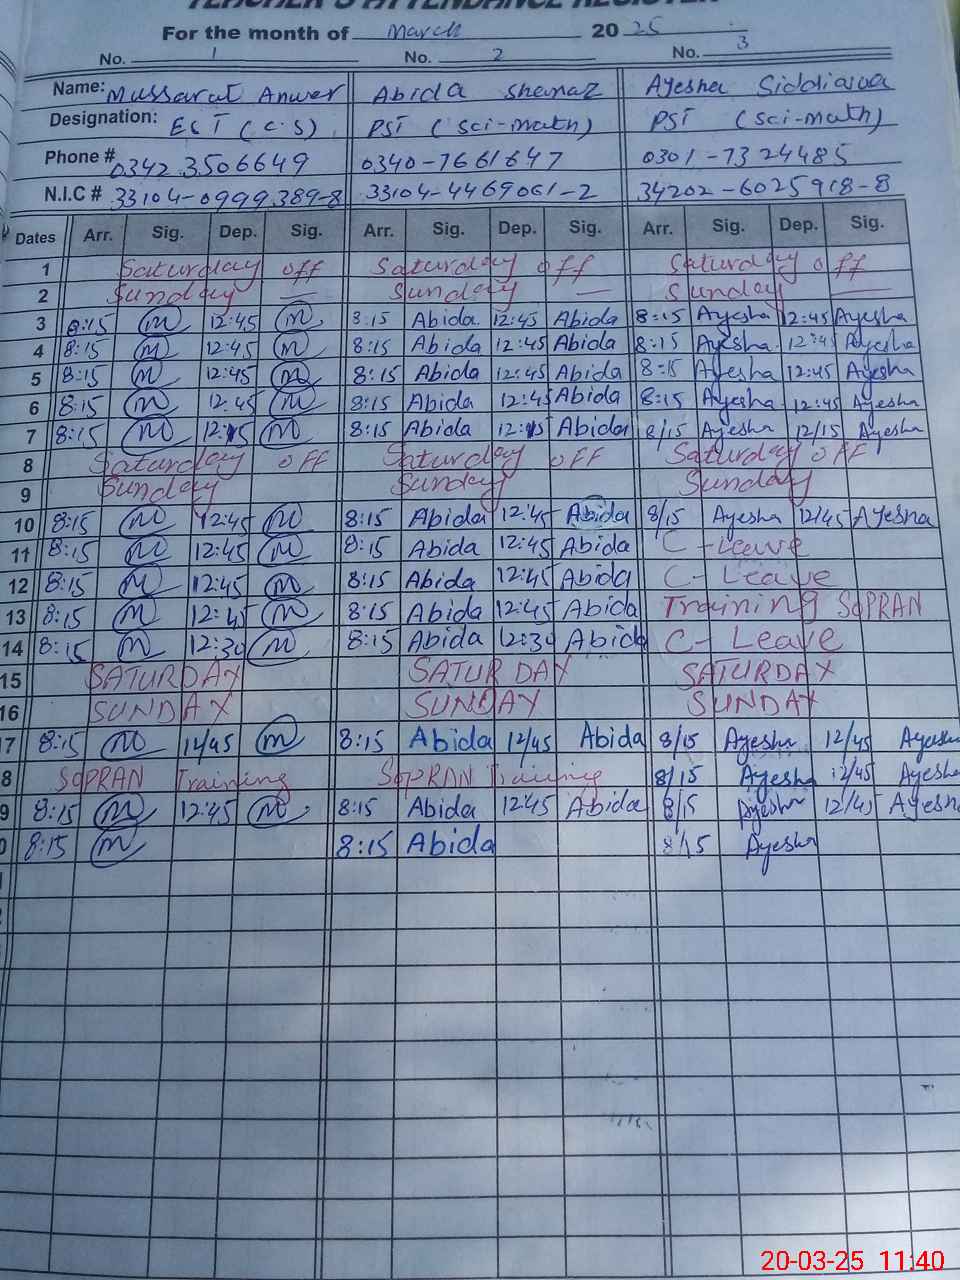 TEACHER'S ATTENDANCE REGISTER
For the month of March 2025
No. 1 No. 2 No. 3
Name: Mussarat Anwer Abida Shanaz Ayesha Siddiqua
Designation: EST (C.S) PST (Sci-math) PST (Sci-math)
Phone # 0342 3506649 0340-7661647 0301-7324485
N.I.C # 33104-0999389-8 33104-4469061-2 34202-6025918-8
Dates Arr. Sig. Dep. Sig. Arr. Sig. Dep. Sig. Arr. Sig. Dep. Sig.
1 Saturday off Saturday off Saturday off
2 Sunday — Sunday — Sunday —
3 8:15 m 12:45 m 8:15 Abida 12:45 Abida 8:15 Ayesha 12:45 Ayesha
4 8:15 m 12:45 m 8:15 Abida 12:45 Abida 8:15 Ayesha 12:45 Ayesha
5 8:15 m 12:45 m 8:15 Abida 12:45 Abida 8:15 Ayesha 12:45 Ayesha
6 8:15 m 12:45 m 8:15 Abida 12:45 Abida 8:15 Ayesha 12:45 Ayesha
7 8:15 m 12:15 m 8:15 Abida 12:15 Abida 8/15 Ayesha 12/15 Ayesha
8 Saturday OFF Saturday OFF Saturday OFF
9 Sunday Sunday Sunday
10 8:15 m 12:45 m 8:15 Abida 12:45 Abida 8/15 Ayesha 12/45 Ayesha
11 8:15 m 12:45 m 8:15 Abida 12:45 Abida C-Leave
12 8:15 m 12:45 m 8:15 Abida 12:45 Abida C-Leave
13 8:15 m 12:45 m 8:15 Abida 12:45 Abida Training SOPRAN
14 8:15 m 12:30 m 8:15 Abida 12:30 Abida C-Leave
15 SATURDAY SATURDAY SATURDAY
16 SUNDAY SUNDAY SUNDAY
7 8:15 m 12/45 m 8:15 Abida 12/45 Abida 8/15 Ayesha 12/45 Ayesha
8 SOPRAN Training SOPRAN Training 8/15 Ayesha 12/45 Ayesha
9 8:15 m 12:45 m 8:15 Abida 12:45 Abida 8/15 Ayesha 12/45 Ayesha
0 8:15 m 8:15 Abida 8/15 Ayesha
20-03-25 11:40